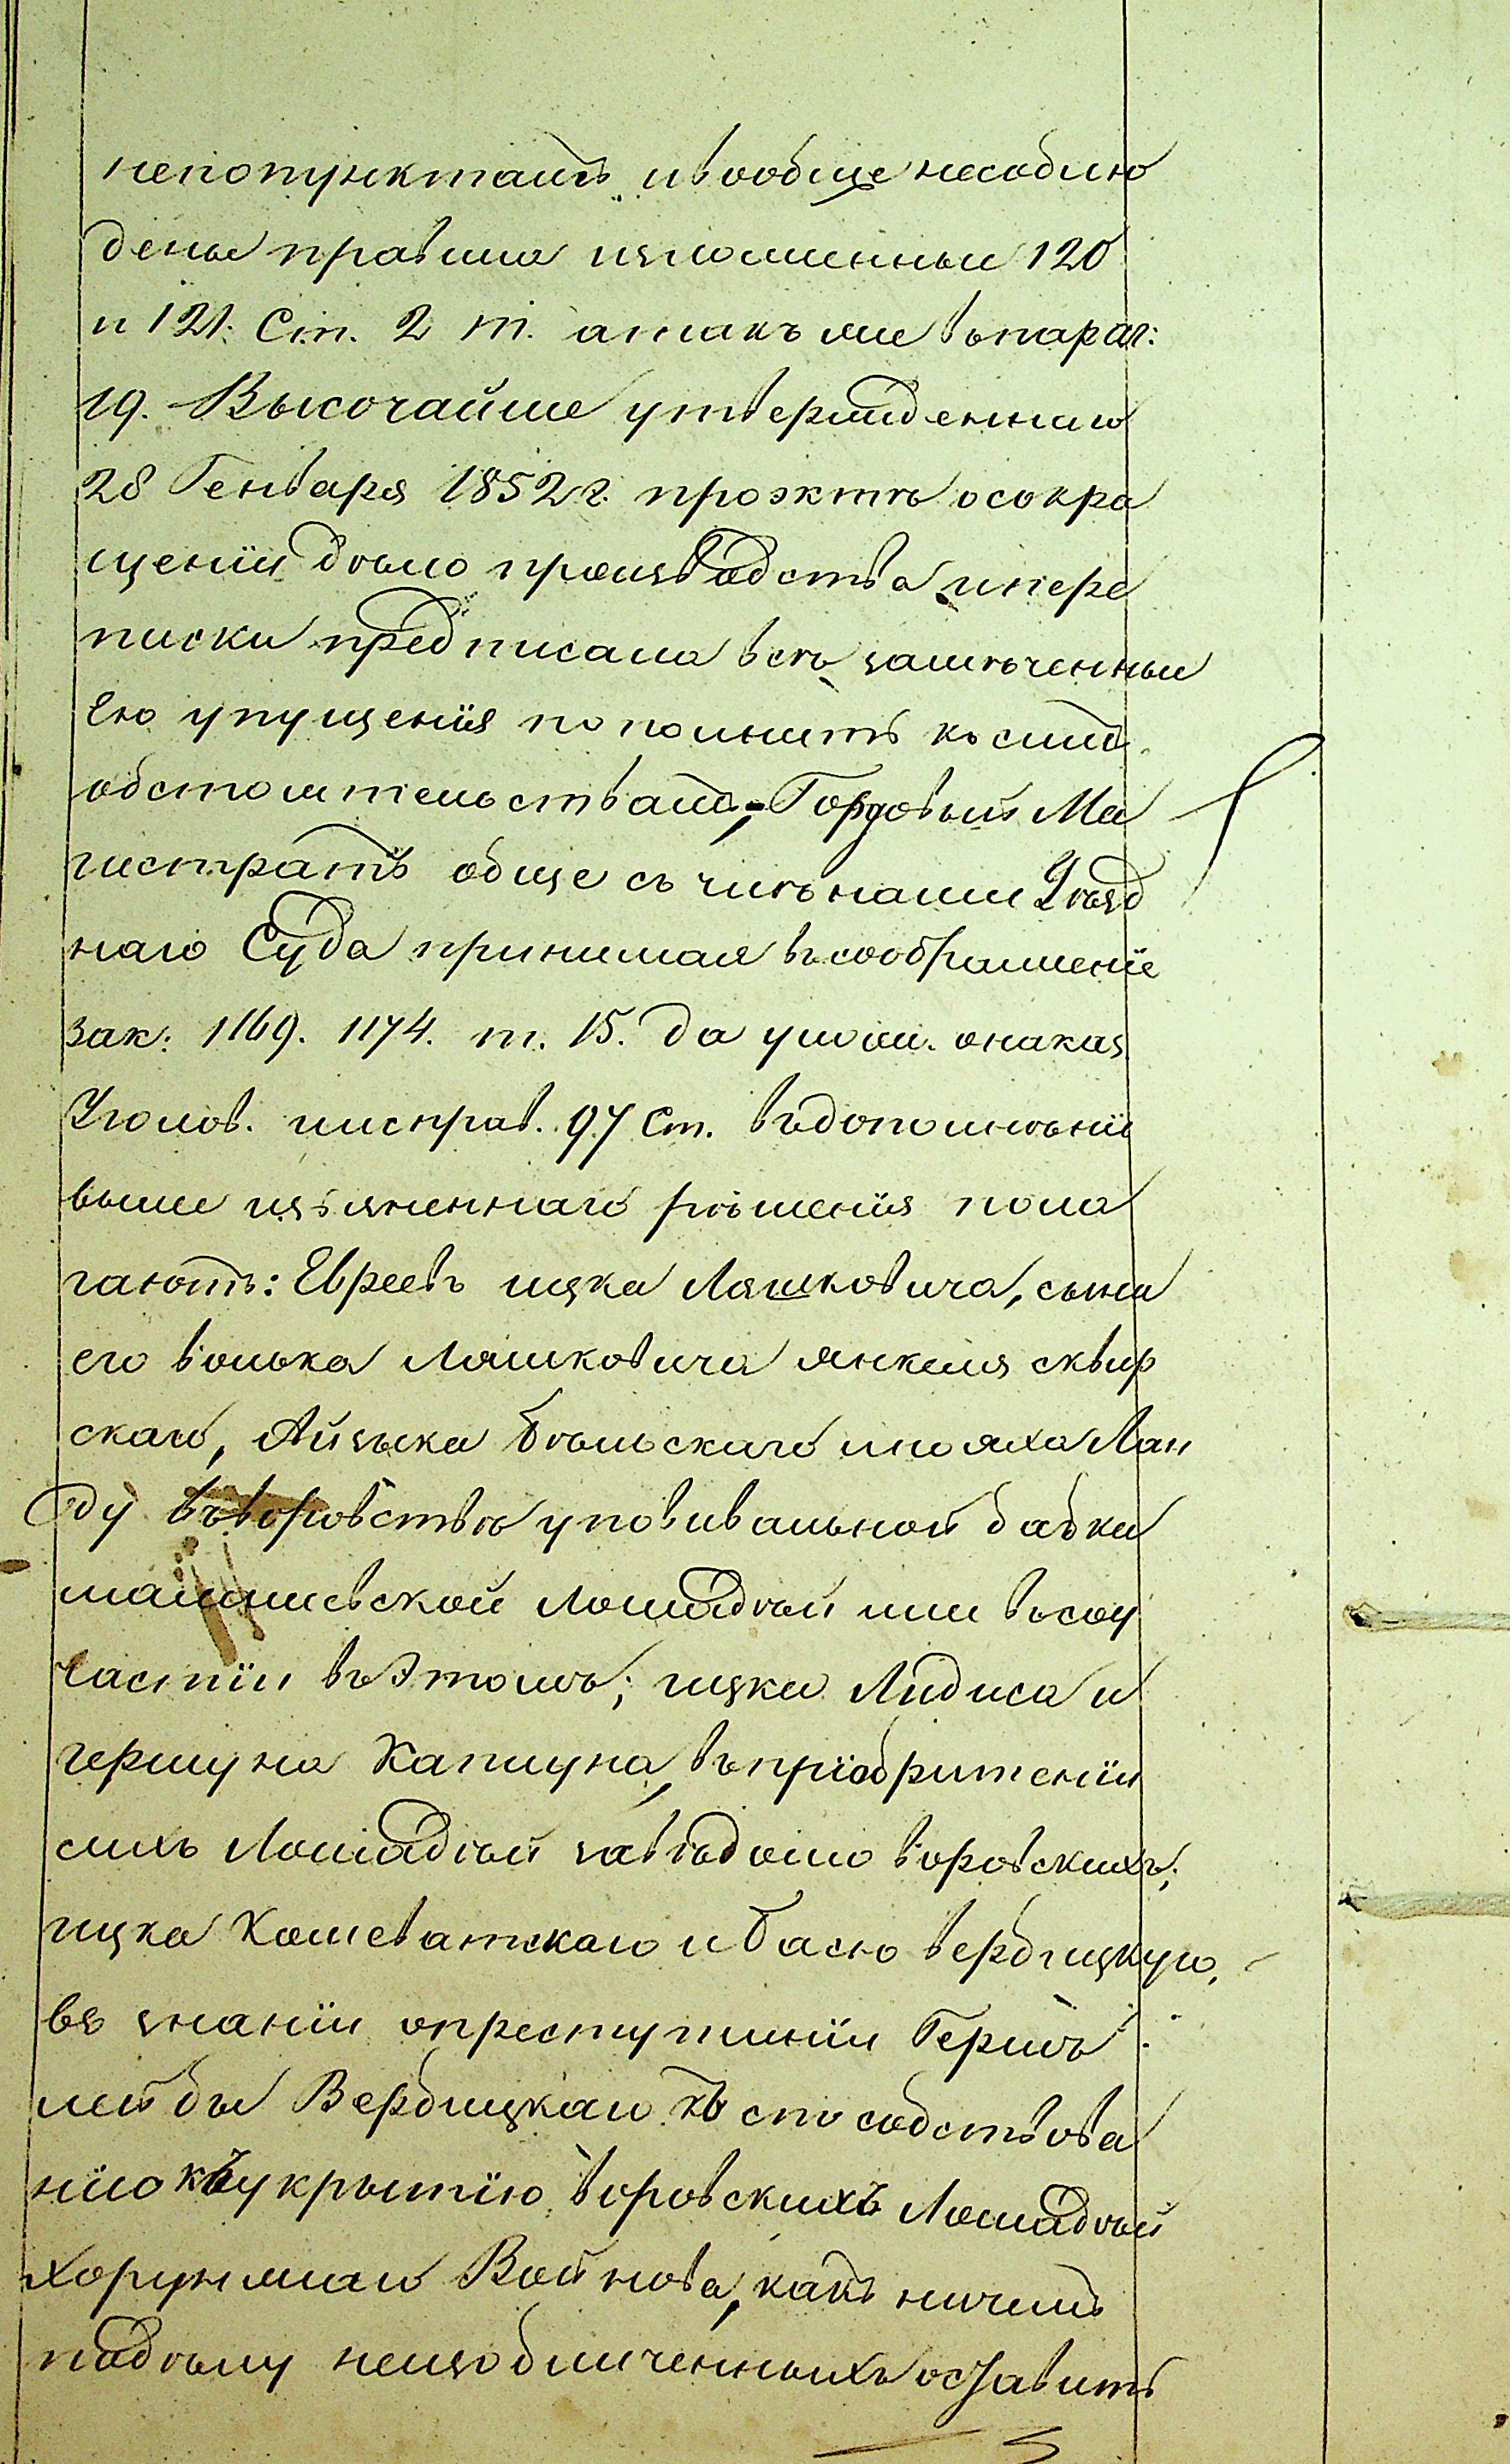 непопунктамъ, и вообще несоблю
дены правила изложенныи 120
и 121. Ст. 2 т. атакъ же въпараг:
19. Высочайше утвержденнаго
28 Генваря 1852 г. проэктѣ осокра
щеніи дѣлопроизводства ипере
писки предписала всѣ замѣченныи
Ею упущенія пополнить ксимъ
обстоятельствамъ; Городовый Ма
гистратъ обще съ членами Уѣзд
наго Суда принимая въсоображеніе
зак: 1169. 1174. т. 15. да улож. онаказ
Уголов. иисправ. 97 Ст. въдополнѣніи
выше изъясненнаго рѣшенія пола
гаютъ: Евреевъ ицка Ляшковича, сына
его волька Ляшковича янкеля сквир
скаго, Айзыка бѣльскаго имояха Лан
ду въворовствѣ уповивальной бабки
малишевской Лошадѣй или въсоу
частіи въЭтомъ; ицка Лидиса и
гершуна Капшуна, въпріобритеніи
сихъ Лошадѣй завѣдомо воровскихъ;
ицка Кошеватскаго иБасю вербицкую,
въ знаніи опреступленіи Гершъ
лейбы Вербицкаго къ способствова
нію къукрытію воровскихъ Лошадѣй
хорунжаго Войнова, какъ ничимъ
подѣлу неизобличенныхъ оставить